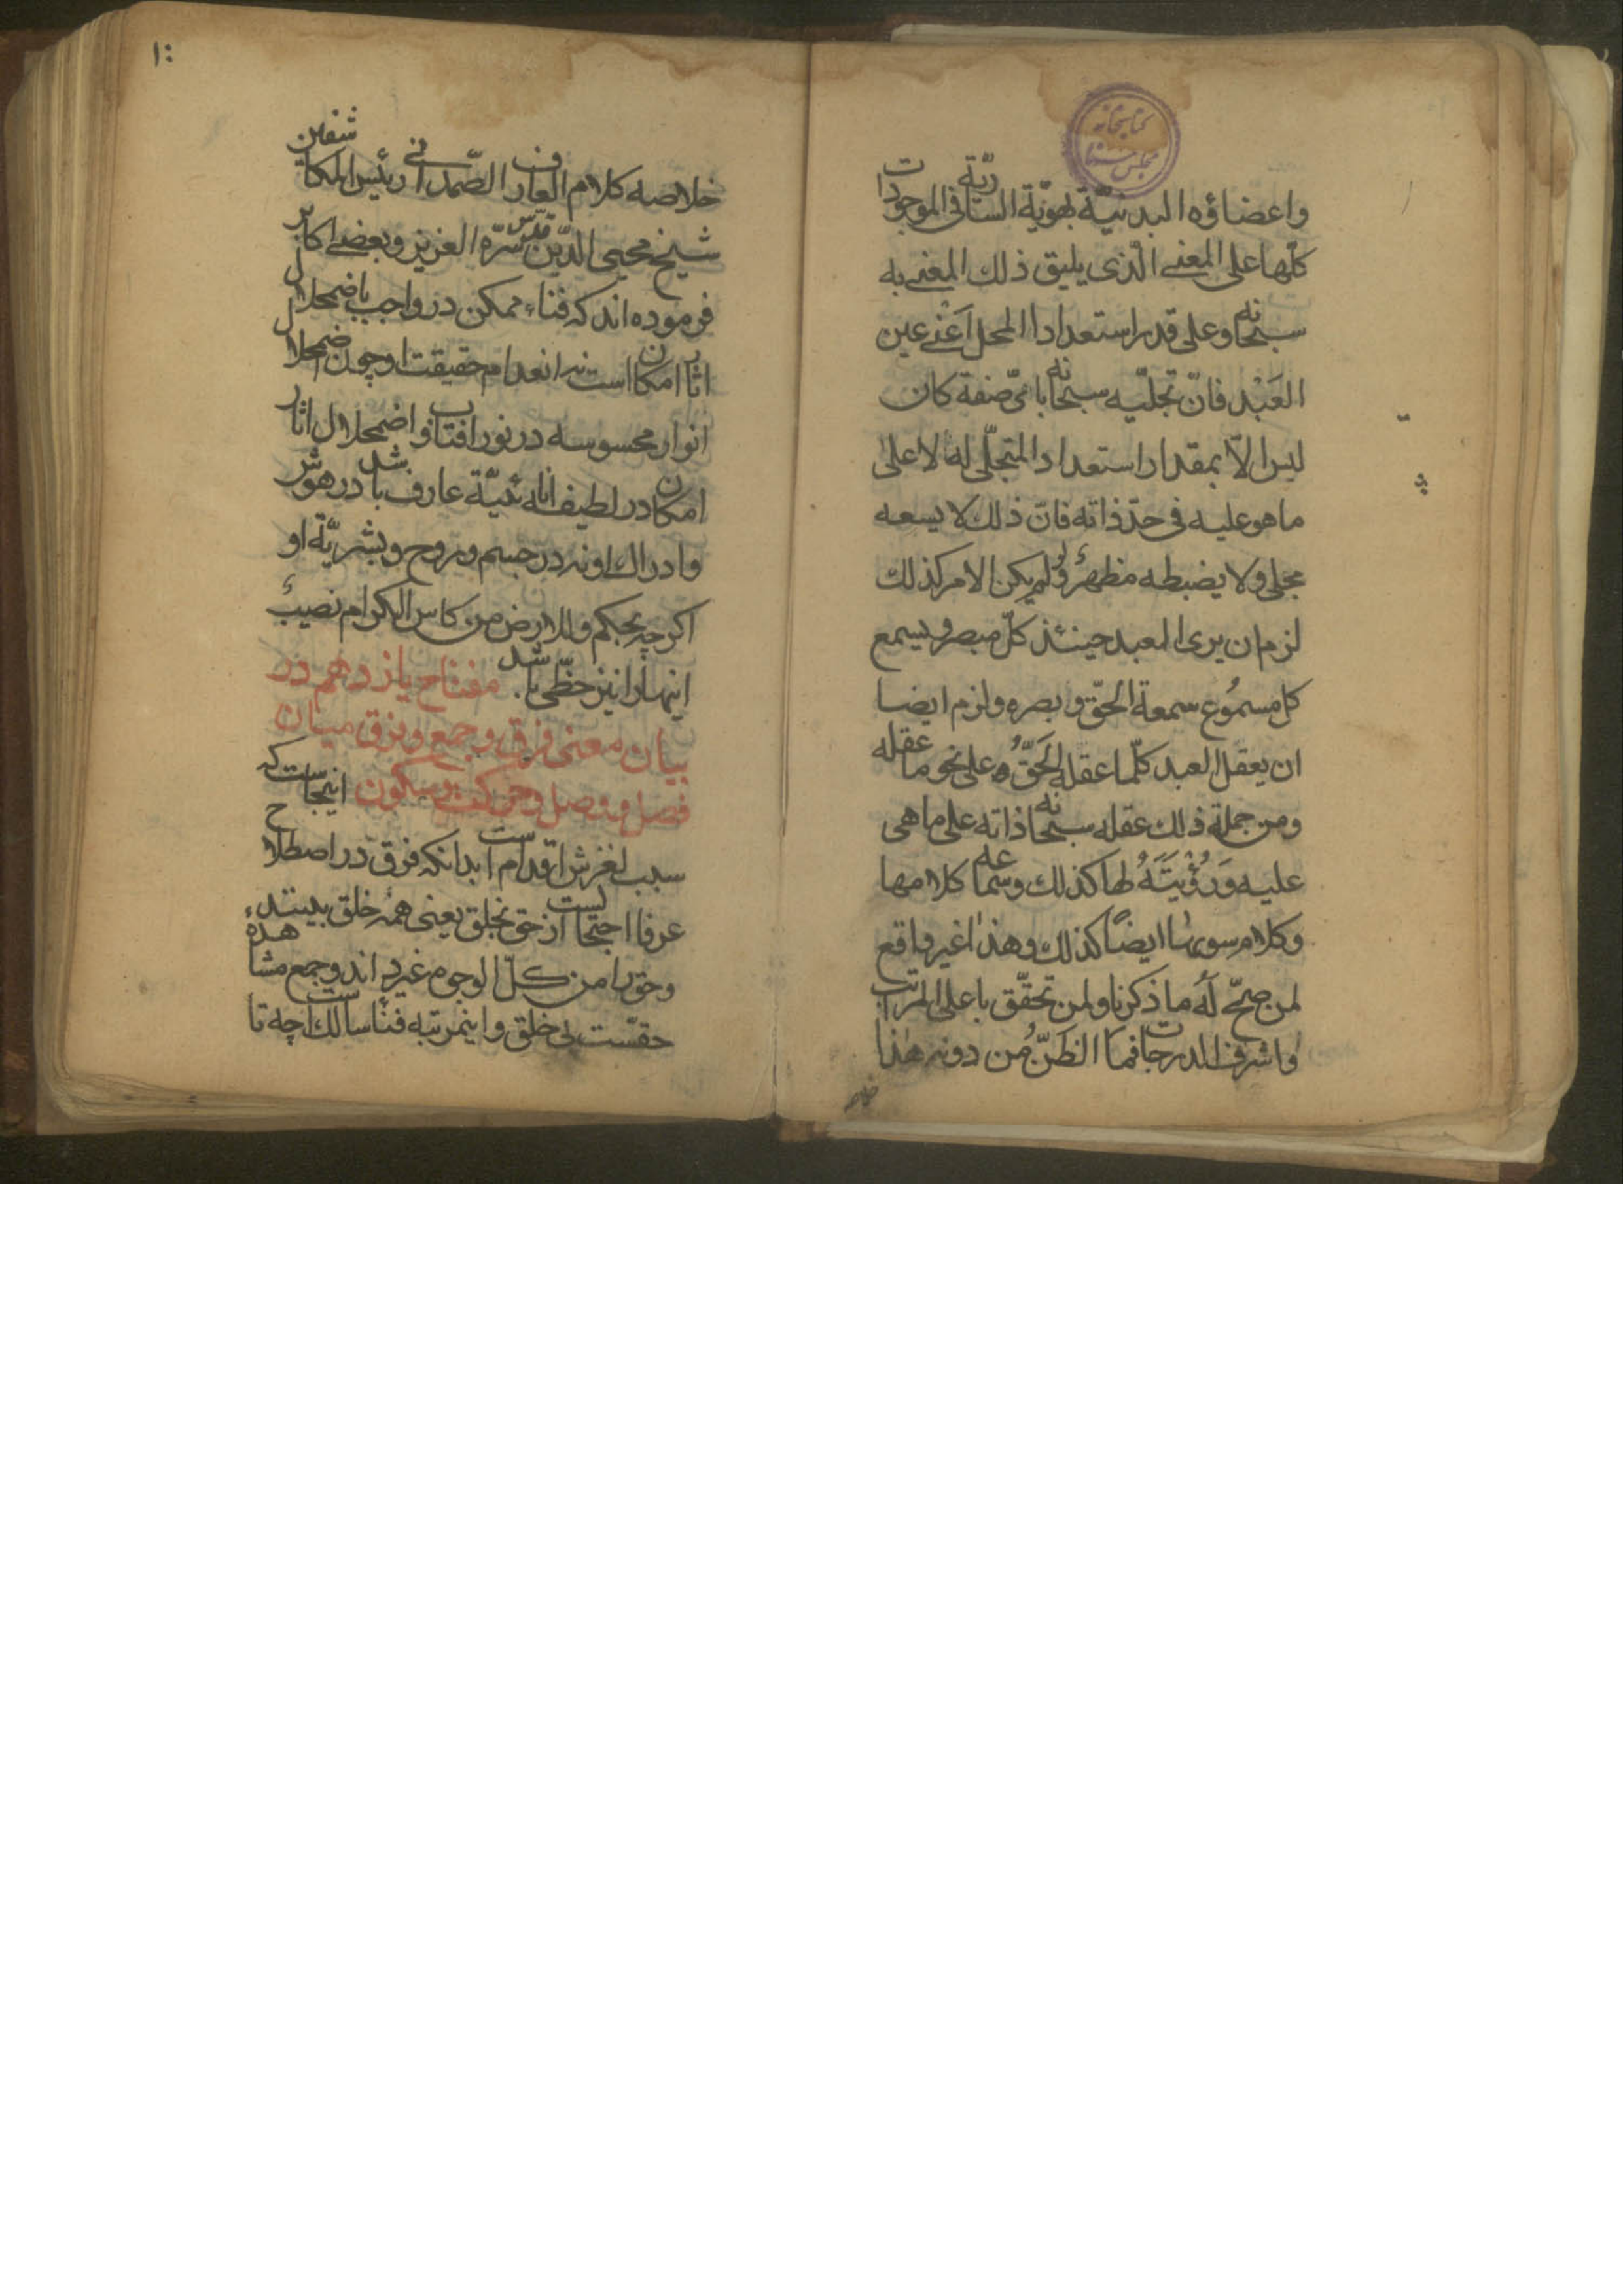 کتابخانه
مجلس سنا
واعضاؤه البدنیّة بهویّة الساریّة فی الموجودات
کلّها علی المعنی الّذی یلیق ذلك المعنی به
سبحانه وعلی قدر استعداد المحل اَعْنی عین
العَبْد فانّ تجلّیه سبحانه بایّ صفة کان
لیس الاّ بمقدار استعداد المتجلّی له لا علی
ما هو علیه فی حدّ ذاته فانّ ذلك لا یسعه
مجلی ولا یضبطه مظهر ولو لم یکن الامر کذلك
لزم ان یری العبد حینئذ کلّ مبصر و یسمع
کل مسمُوع سمعة الحقّ و بصره ولزم ایضا
ان یعقل العبد کلّما عقله الحَقُّ علی نحو ما عقله
ومن جملة ذلك عقله سبحانه ذاته علی ما هی
علیه وَرُؤْیتَهُ لها کذلك وسماعه کلامها
وکلام سویها ایضًا کذلك وهذا غیر واقع
لمن صحّ لَه ما ذکرنا ولمن تحقّق باعلی المراتب
واشرف الدرجات فما الظنّ مُن دونه هذا
خلاصه
۱۰
خلاصه کلام العارف الصّمدانی رئیس المکاشفین
شیخ محیی الدّین قدّس سرّه العزیز وبعضی اکابر
فرموده اند که فناء ممکن در واجب باضمحلال
اثار امکان است نه انعدام حقیقت او چون اضمحلال
انوار محسوسه در نور افتاب و اضمحلال اثار
امکان در لطیفه انائیّة عارف باشد در هوش
وادراك او نه در جسم و روح و بشریّة او
اکرچه بحکم وللارض من کاس الکرام نصیب
اینها را نیز حظّی باشد. مفتاح یازدهم در
بیان معنی فرق و جمع و فرق میان
فصل و وصل و حرکت و سکون اینجاست که
سبب لغزش اقدام است بدانکه فرق در اصطلاح
عرفا احتجابست از حق بخلق یعنی همه خلق بیند
وحق را من کلّ الوجوه غیر داند و جمع مشاهده
حقّست بی خلق و اینمرتبه فناء سالك است چه تا